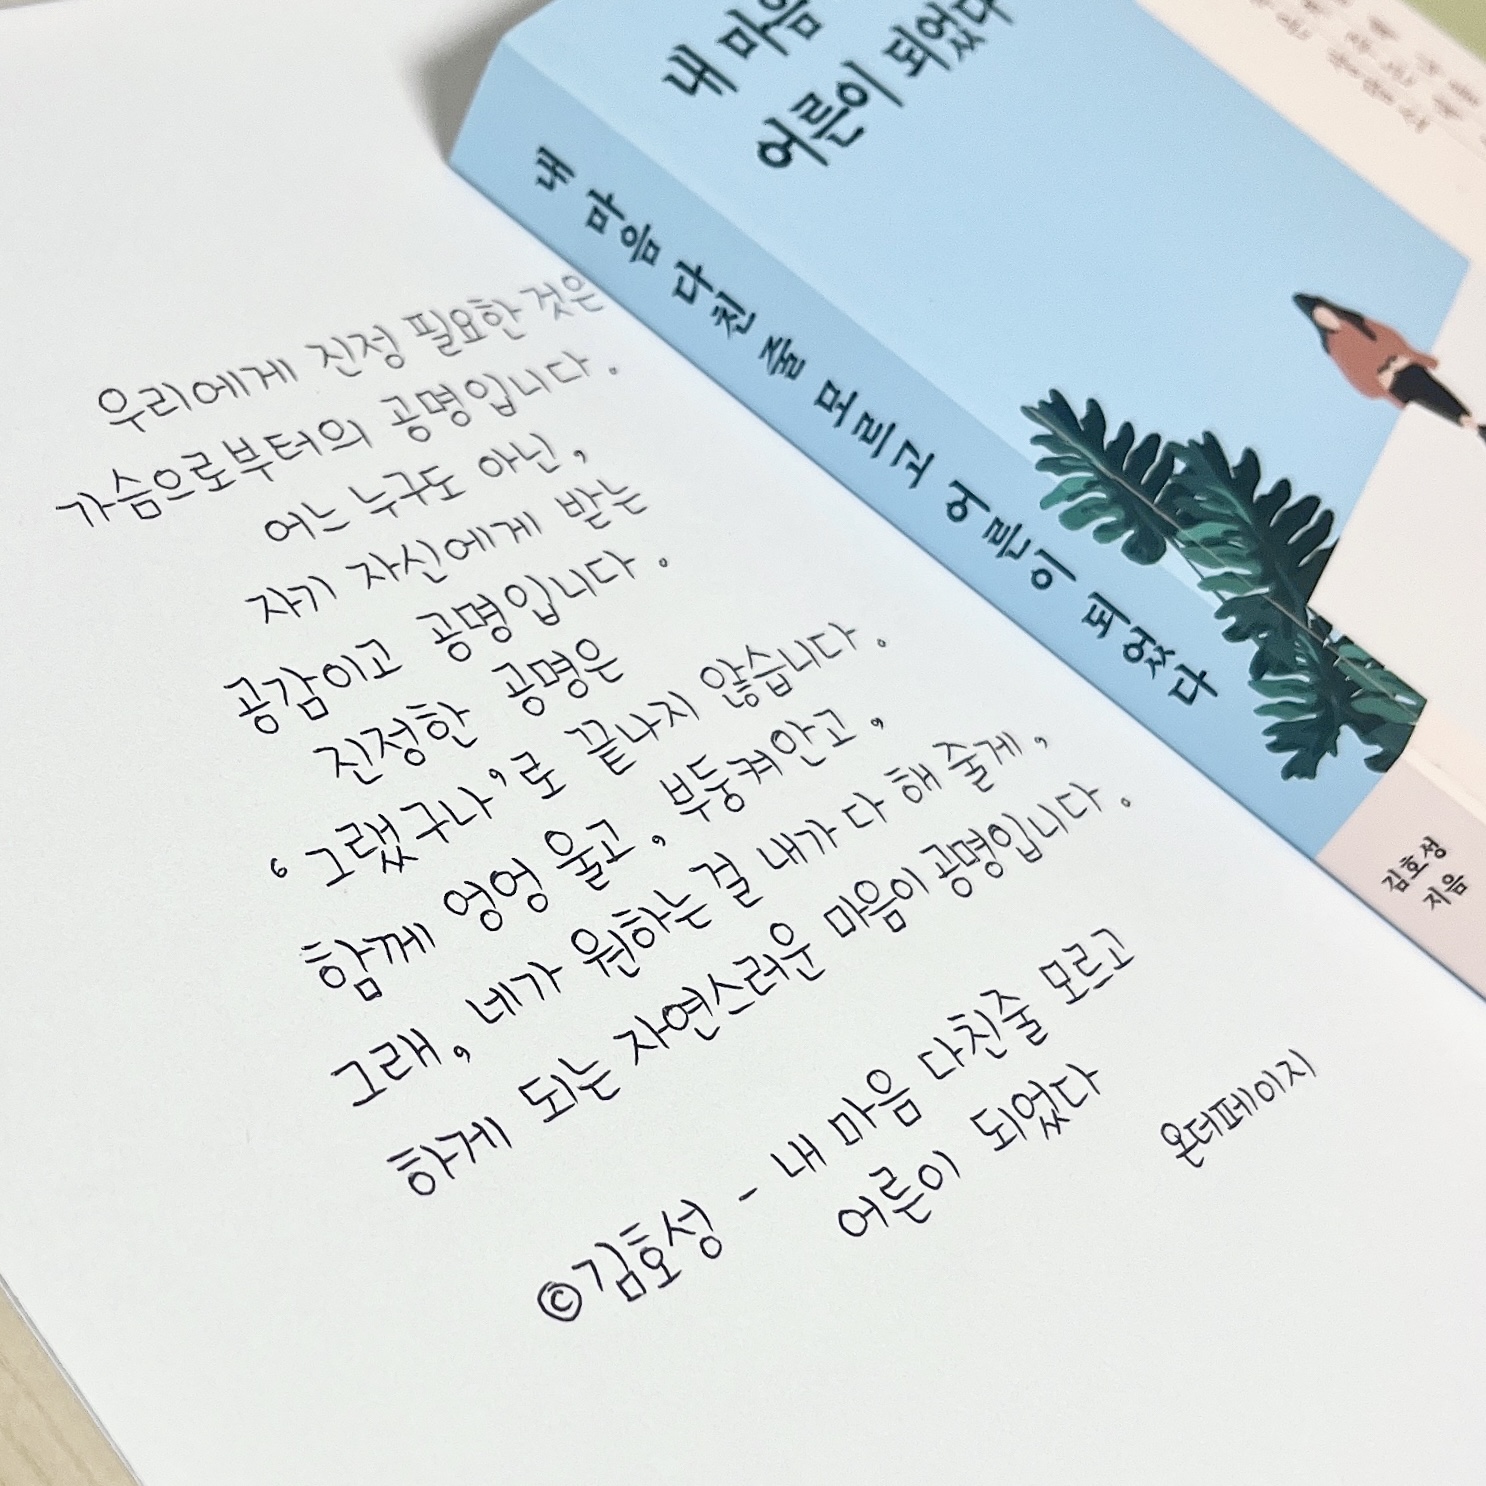 우리에게 진정 필요한 것은
가슴으로부터의 공명입니다.
어느 누구도 아닌,
자기 자신에게 받는
공감이고 공명입니다.
진정한 공명은
'그랬구나'로 끝나지 않습니다.
함께 엉엉 울고, 부둥켜안고,
그래, 네가 원하는 걸 내가 다 해 줄게,
하게 되는 자연스러운 마음이 공명입니다.
©김호성 - 내 마음 다친줄 모르고
어른이 되었다
온더페이지
내 마음
어른이 되었다
내 마음 다친 줄 모르고 어른이 되었다
김호성
지음